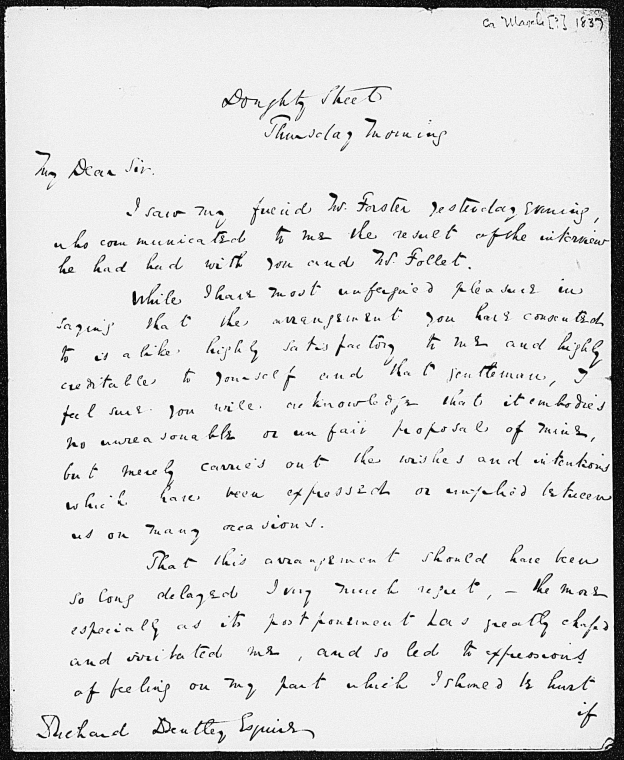 Ca March [?] 1837
Doughty Street
Thursday Morning
My Dear Sir.
I saw my friend Mr. Forster yesterday evening,
who communicated to me the result of the interview
he had had with you and Mr. Follet.
While I have most unfeigned pleasure in
saying that the arrangement you have consented
to is alike highly satisfactory to me and highly
creditable to yourself and that gentleman, I
feel sure you will acknowledge that it embodies
no unreasonable or unfair proposal of mine,
but merely carries out the wishes and intentions
which have been expressed or implied between
us on many occasions.
That this arrangement should have been
so long delayed I very much regret, – the more
especially as its postponement has greatly chafed
and irritated me, and so led to expressions
of feeling on my part which I should be hurt
if
Richard Bentley Esquire